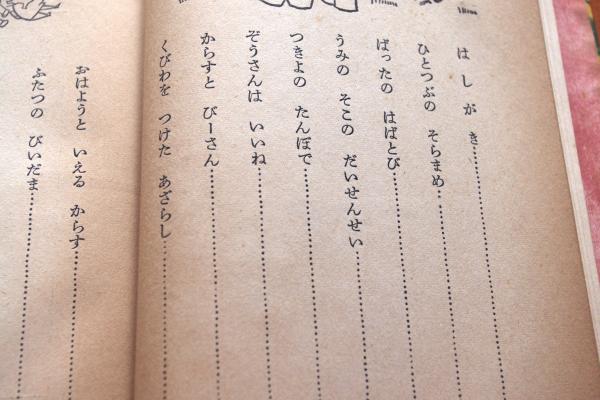 はしがき
ひとつぶの そらまめ
ばったの はばとび
うみの そこの だいせんせい
つきよの たんぼで
ぞうさんは いいね
からすと びーさん
くびわを つけた あざらし
おはようと いえる からす
ふたつの びいだま